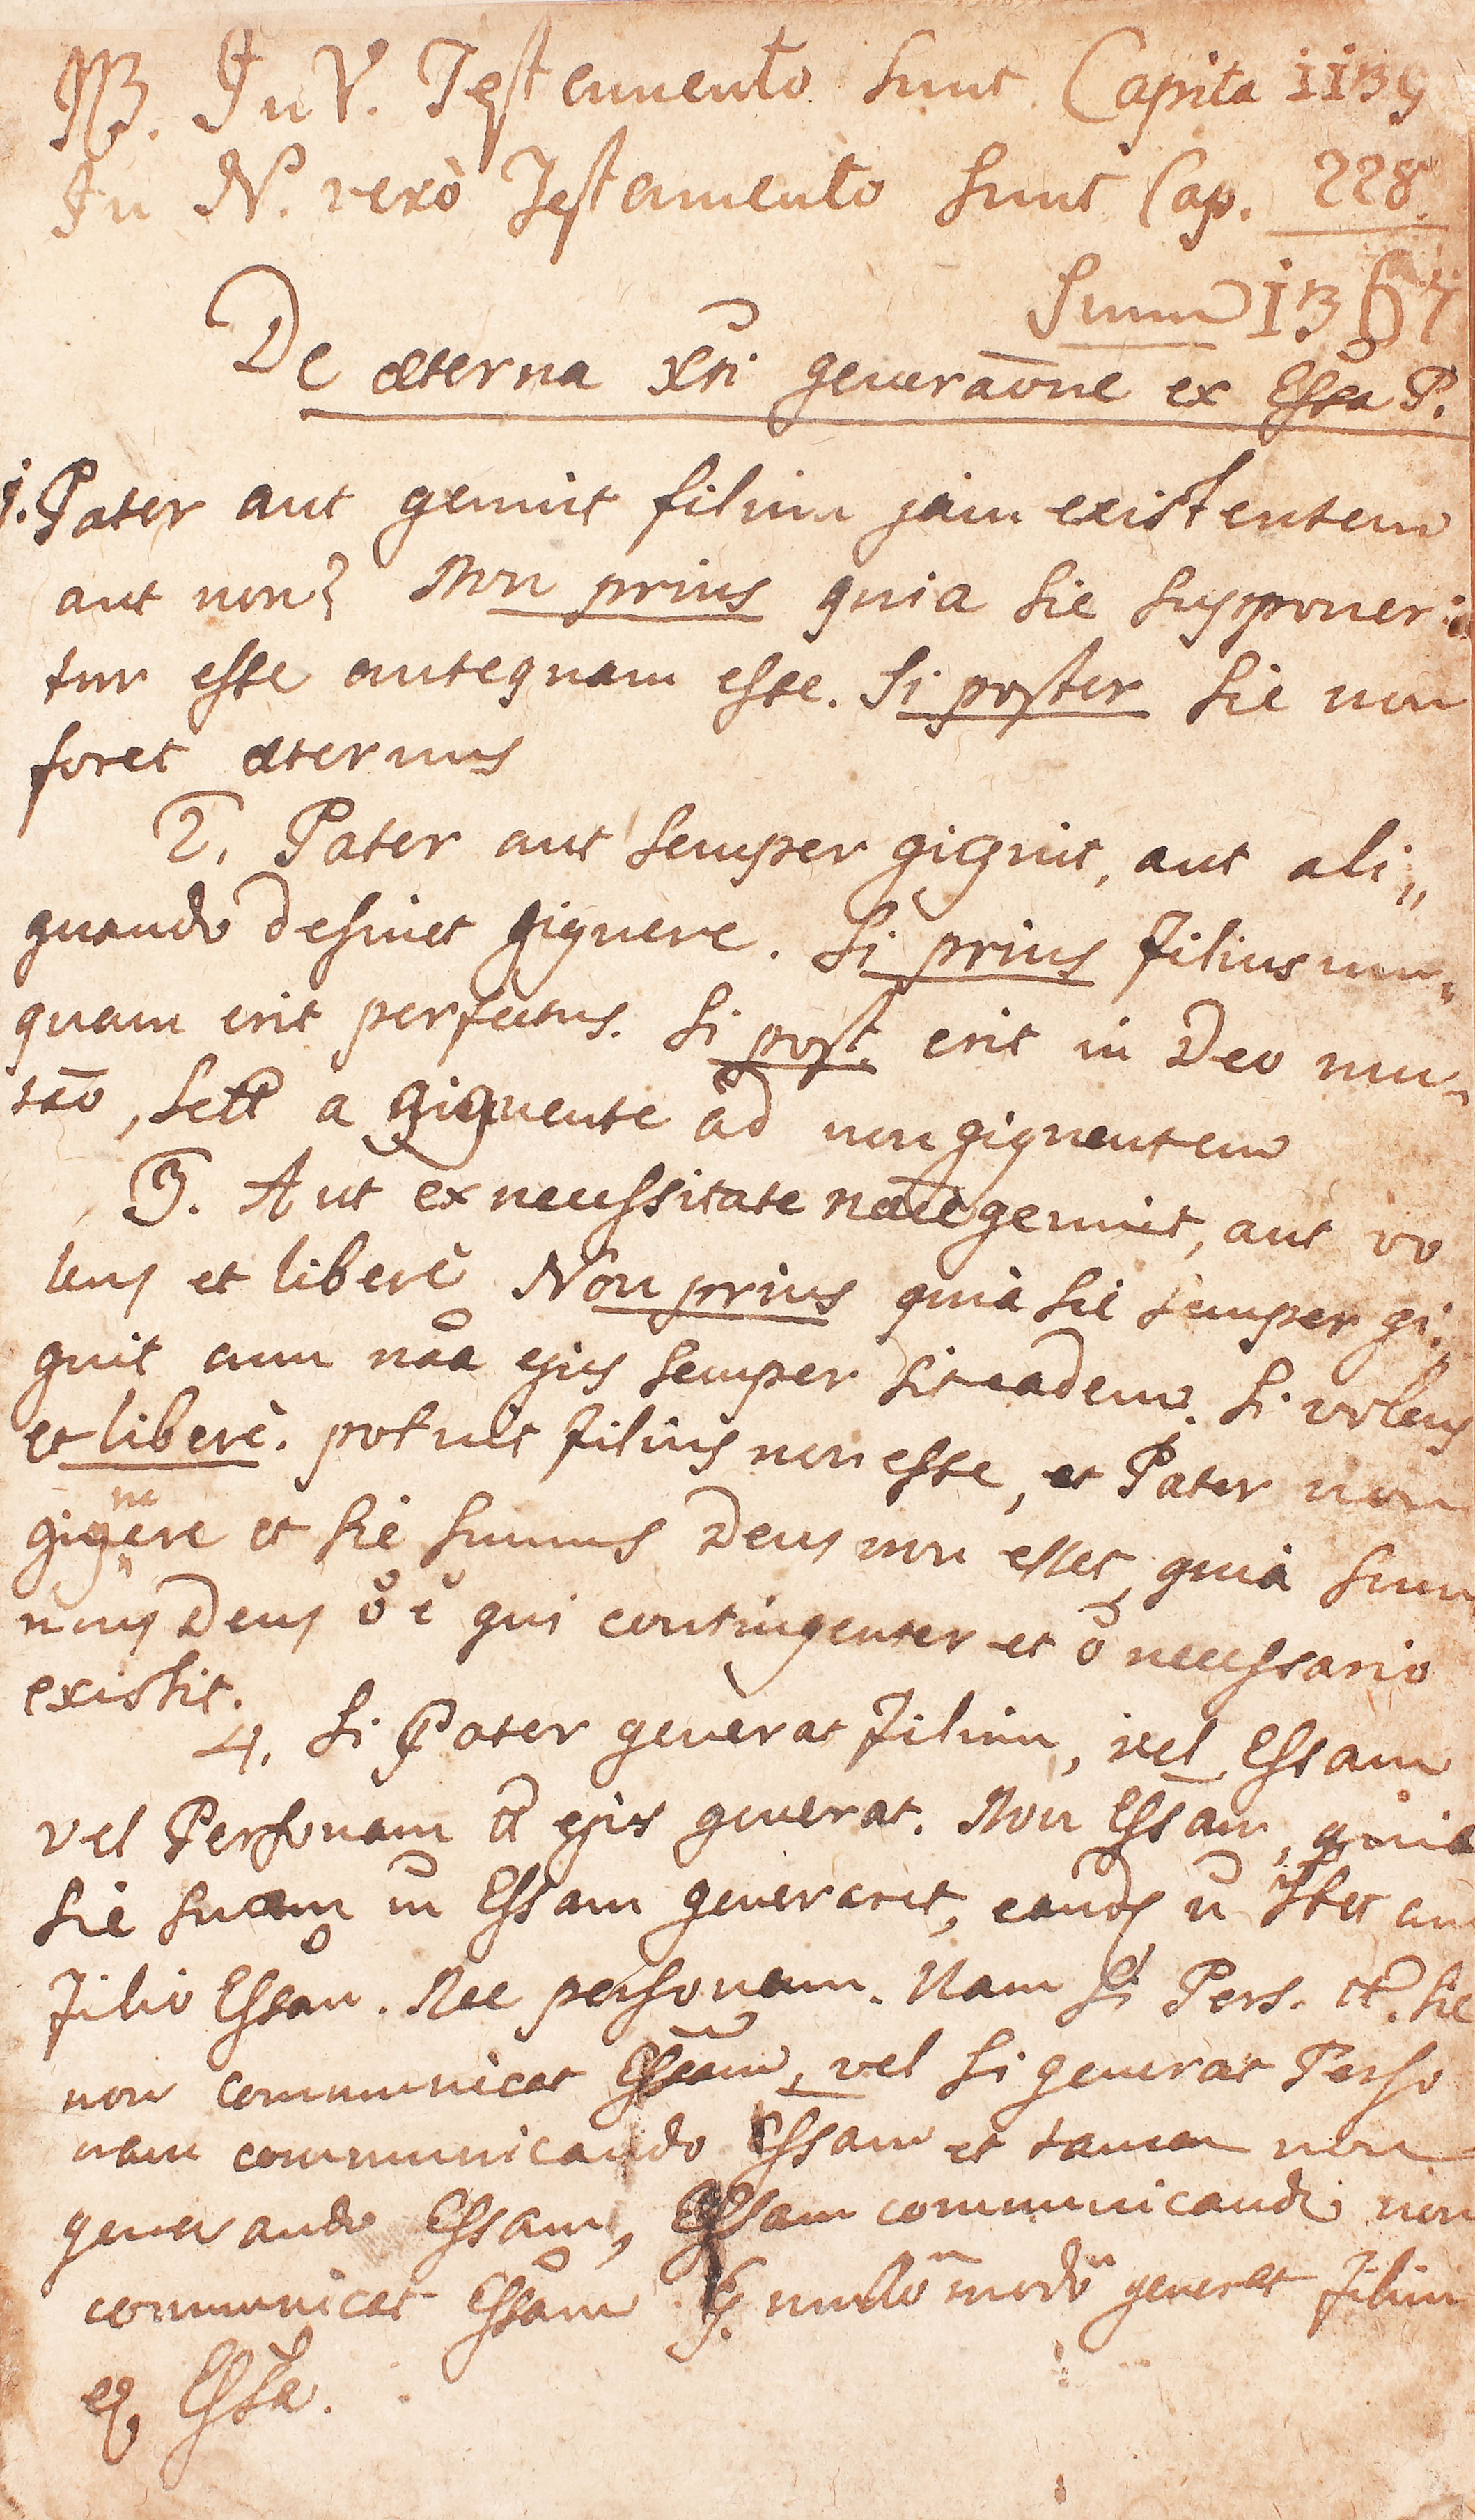 NB. In V. Testamento sunt Capita 1139
In N. verò Testamento sunt Cap. 228.
Sum 1367
De æterna Xti generaōne ex Essa P.
1. Pater aut genuit filium jam existentem
aut non? Non prius quia sic supponer:
tur esse antequam esse. Si poster sic non
foret æternus
2. Pater aut semper gignit, aut ali„
quando desinet gignere. Si prius Filius nun„
quam erit perfectus. Si post. erit in Deo mu„
taō, sclt a gignente ad non gignentem
3. Aut ex necessitate nāæ genuit, aut vo
lens et liberè Non prius quia sic semper gi„
gnit cum nāa ejus semper sit eadem. Si volens
et liberè. potuit Filius non esse, et Pater non
gignere et sic sumus Deus non esset, quia sum
mus Deus ō ē qui contingenter et ō necessario
existit.
4. Si Pater generat Filium, vel Essam
vel Personam ejus generat. Non Essam, quia
sic suam in Essam generaret, eandē ñ cum
Filio Essam. Nec personam. Nam si Pers. sic
non communicat Essam, vel si generat Perso
nam communicando Essam et tamen non
generando Essam, Essam communicando non
communicat Essam. nullo modo generat Filium
ex Essa.